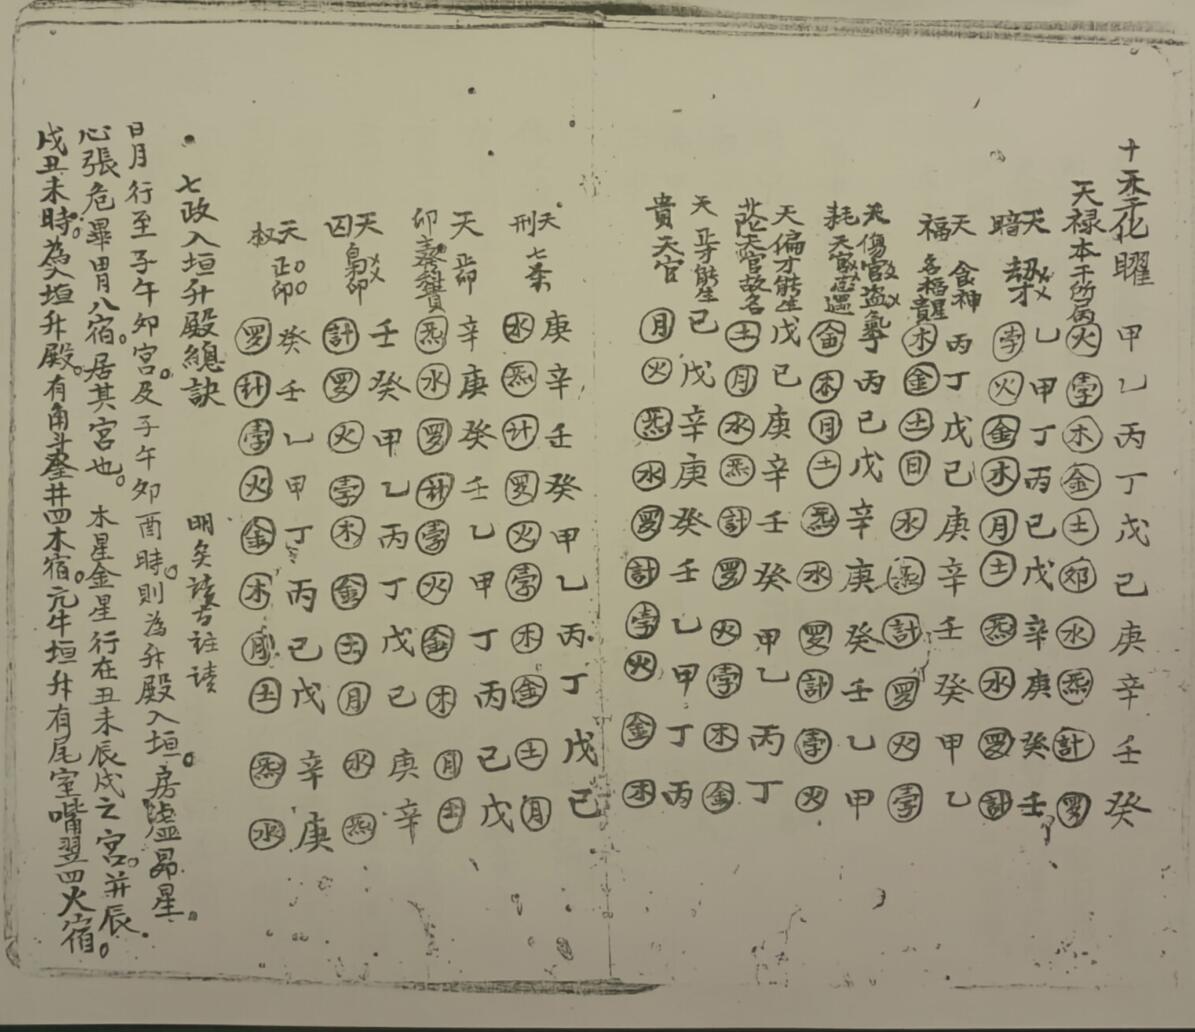 十天干化曜 甲乙丙丁戊己庚辛壬癸
天祿本干所屬 火孛木金土月水炁計羅
天暗 劫才 乙甲丁丙己戊辛庚癸壬
孛火金木月土炁水羅計
天福 食神名福星 丙丁戊己庚辛壬癸甲乙
木金土日水炁計羅火孛
天耗 傷官盗氣天官忌遇 丁丙己戊辛庚癸壬乙甲
金木月土炁水羅計孛火
天 偏才能生天官故名 戊己庚辛壬癸甲乙丙丁
土月水炁計羅火孛木金
天貴 正才能生天官 己戊辛庚癸壬乙甲丁丙
月火炁水羅計孛火金木
天刑 七杀 庚辛壬癸甲乙丙丁戊己
水炁计羅火孛木金土月
天印 正印 辛庚癸壬乙甲丁丙己戊
炁水羅计孛火金木月土
天囚 梟印 壬癸甲乙丙丁戊己庚辛
計羅火孛木金土月水炁
天权 正印 癸壬乙甲丁丙己戊辛庚
羅计孛火金木月土炁水
七政入垣升殿總訣 明矣讀者註讀
日月行至子午卯宮。及子午卯酉時。則為升殿入垣。房虛昴星。
心張危畢胃八宿。居其宮也。木星金星行在丑未辰戌之宮。并辰。
戌丑未時。為入垣升殿。有角斗奎井四木宿。亢牛垣升有尾室嘴翌四火宿。